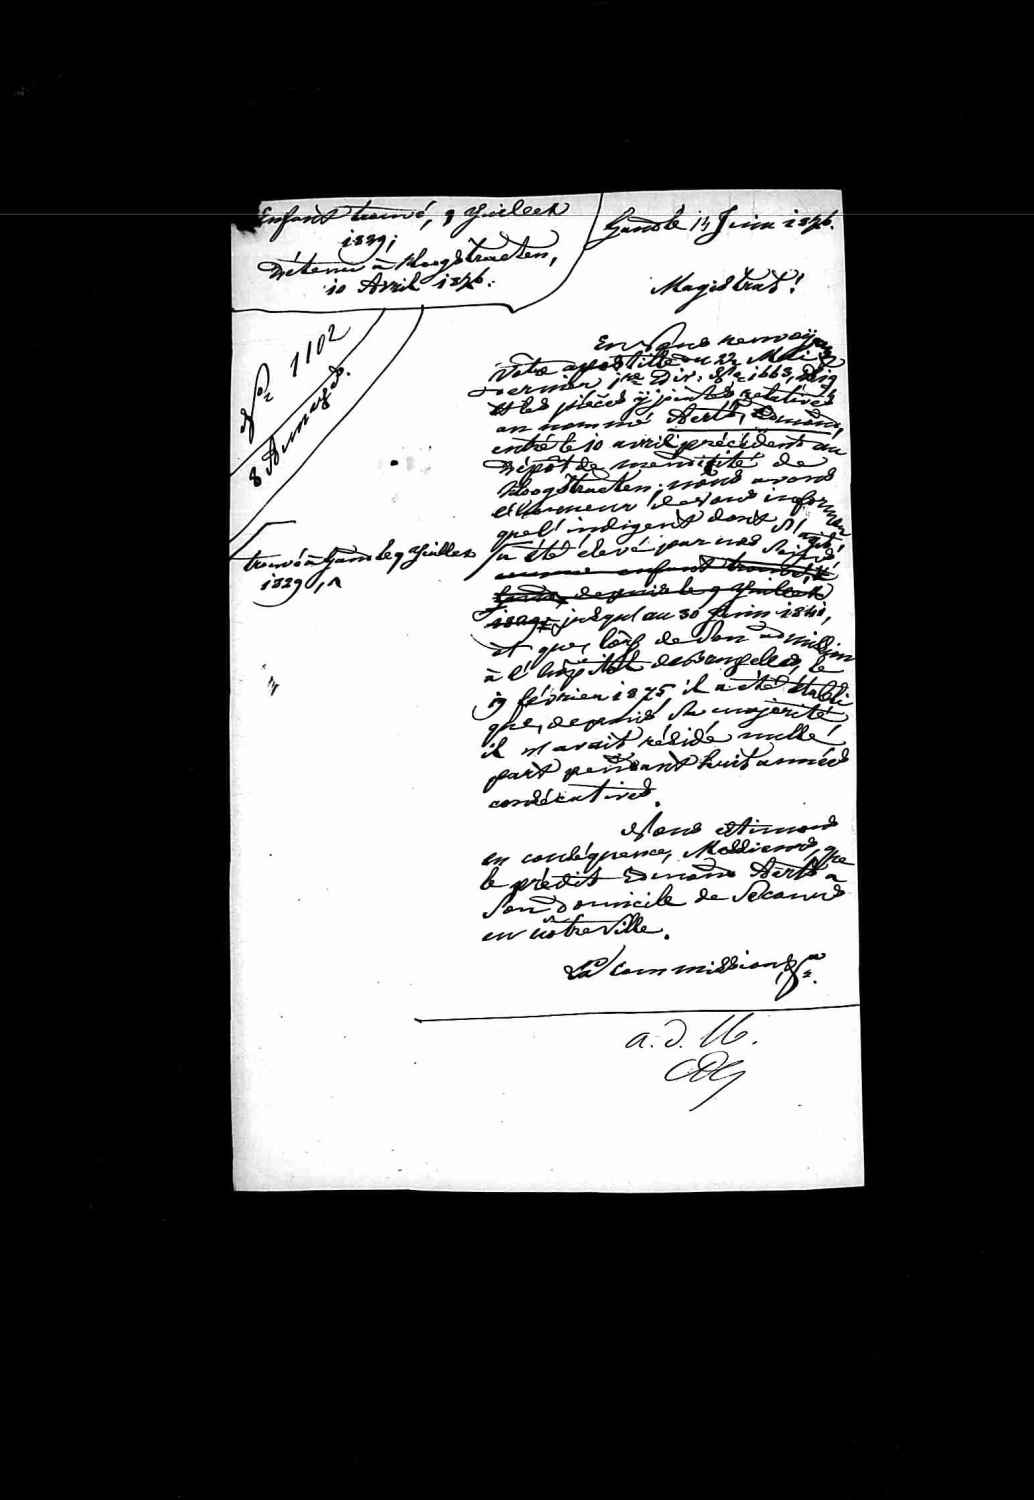 Enfant trouvé, 9 Juillet
1829;
Détenu à Hoogstraeten,
10 Avril 1876.
Gand le 14 Juin 1876.
Magistrat!
No 1102
8 Annexes.
En Vous renvoyant
Votre apostille du 22 Mai
dernier 1re Div. No 1663,
et les pièces y jointes relatives
au nommé Aerts, Edmond,
entré le 10 avril précédent au
Dépôt de mendicité de
Hoogstraeten, nous avons
l'honneur de Vous informer
que l'indigent dont il s'agit,
trouvé à Gand le 9 Juillet
1829,
a été élevé par nos soins
comme enfant trouvé, à
Gand, depuis le 9 Juillet
1829, jusqu'au 30 Juin 1841,
et que, lors de son admission
à l'hôpital de Bruxelles, le
19 février 1875, il a été établi
que, depuis sa majorité
il n'avait résidé nulle
part pendant huit années
consécutives.
Nous estimons
en conséquence, Messieurs, que
le prédit Edmond Aerts a
son domicile de secours
en notre Ville.
La Commission,
a. d. 16.